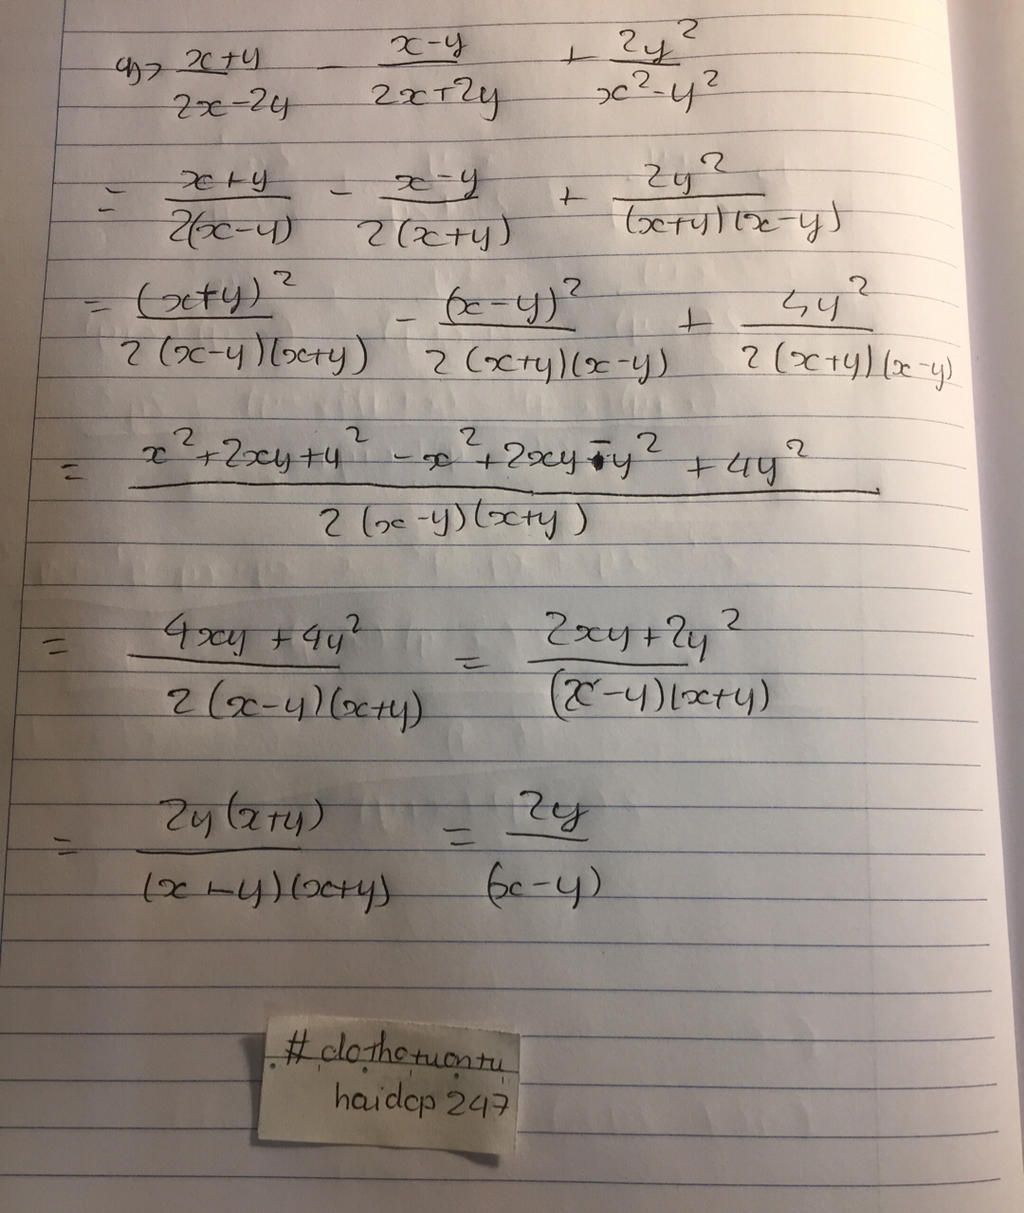 a> (x+y)/(2x-2y) - (x-y)/(2x+2y) + 2y²/(x²-y²)
= (x+y)/(2(x-y)) - (x-y)/(2(x+y)) + 2y²/((x+y)(x-y))
= (x+y)²/(2(x-y)(x+y)) - (x-y)²/(2(x+y)(x-y)) + 4y²/(2(x+y)(x-y))
= (x²+2xy+y²-x²+2xy-y²+4y²)/(2(x-y)(x+y))
= (4xy+4y²)/(2(x-y)(x+y)) = (2xy+2y²)/((x-y)(x+y))
= 2y(x+y)/((x-y)(x+y)) = 2y/(x-y)
haidcp 247